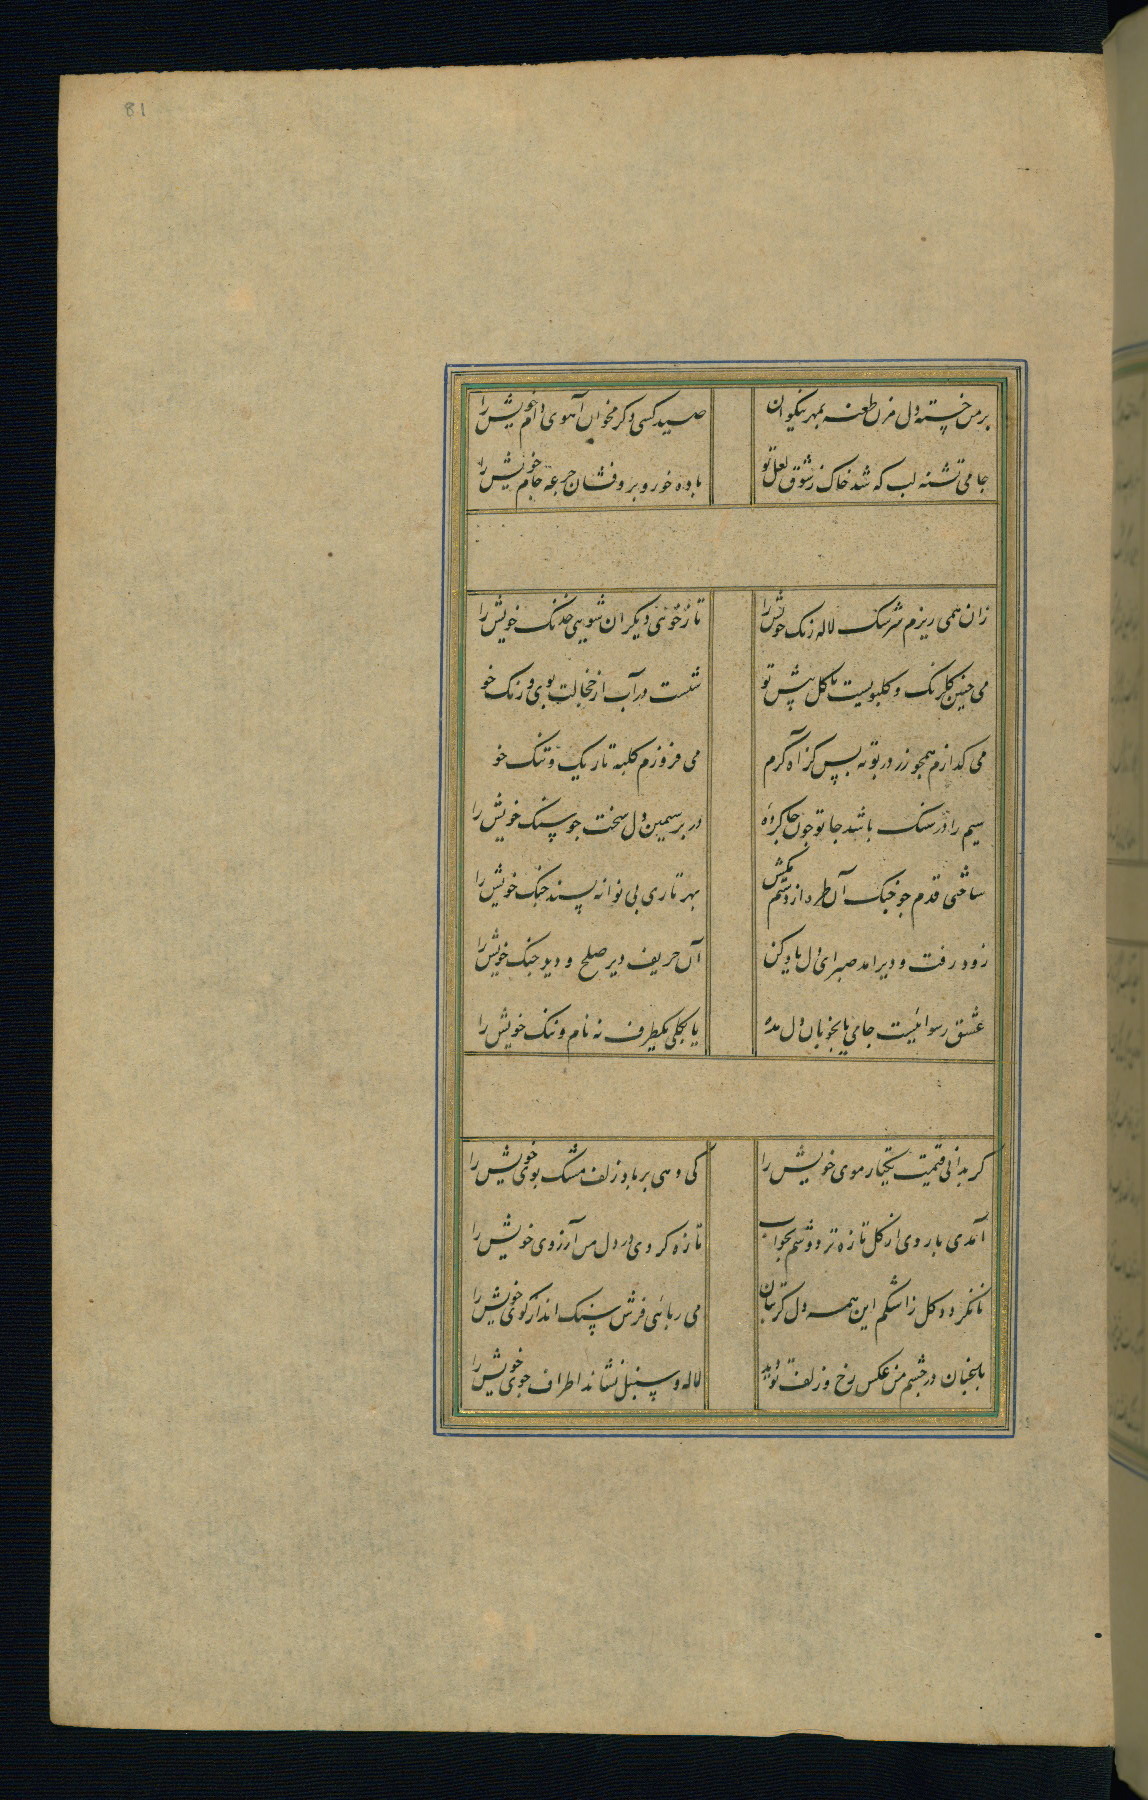 81
بر من خسته دل مزن طعنه بمهر نیکوان صید کسی دکر مخوان آهوی دام خویش را
جامی تشنه لب که شد خاک ز شوق لعل تو باده خور و برو فشان جرعه جام خویش را
زان همی ریزم سرشک لاله رنک خویش را تا ز خون دیکران شویی خدنک خویش را
می جنین کلرنک و کلبو نیست یا کل پیش تو شست در آب از خجالت بوی و رنک خو
می کدازم همجو زر در بوته بس کز آه کرم می فروزم کلبه تاریک و تنک خو
سیم را در سنک باشد جا تو جون جا کرده در بر سیمین دل سخت جو سنک خویش را
ساختی قدم جو جنک آن طره از دستم مکش بهر تاری بی نوا نه پسند جنک خویش را
زود رفت و دیر امد صبر ای دل یاد کن آن حریف دیر صلح و دید جنک خویش را
عشق رسوائیست جامی یا بخوبان دل مده یا بکلی یکطرف نه نام و ننک خویش را
کر بدانی قیمت یکتار موی خویش را کی دهی بر باد زلف مشک بوی خویش را
آمدی با روی از کل تازه تر دوشم بخواب تازه کردی در دل من آرزوی خویش را
تا نکردد کل ز اشکم این همه دل کز بتان می ربائی فرش سنک انداز کوی خویش را
باغبان در جشم من عکس رخ و زلف تو دید لاله و سنبل نشاند اطراف جوی خویش را